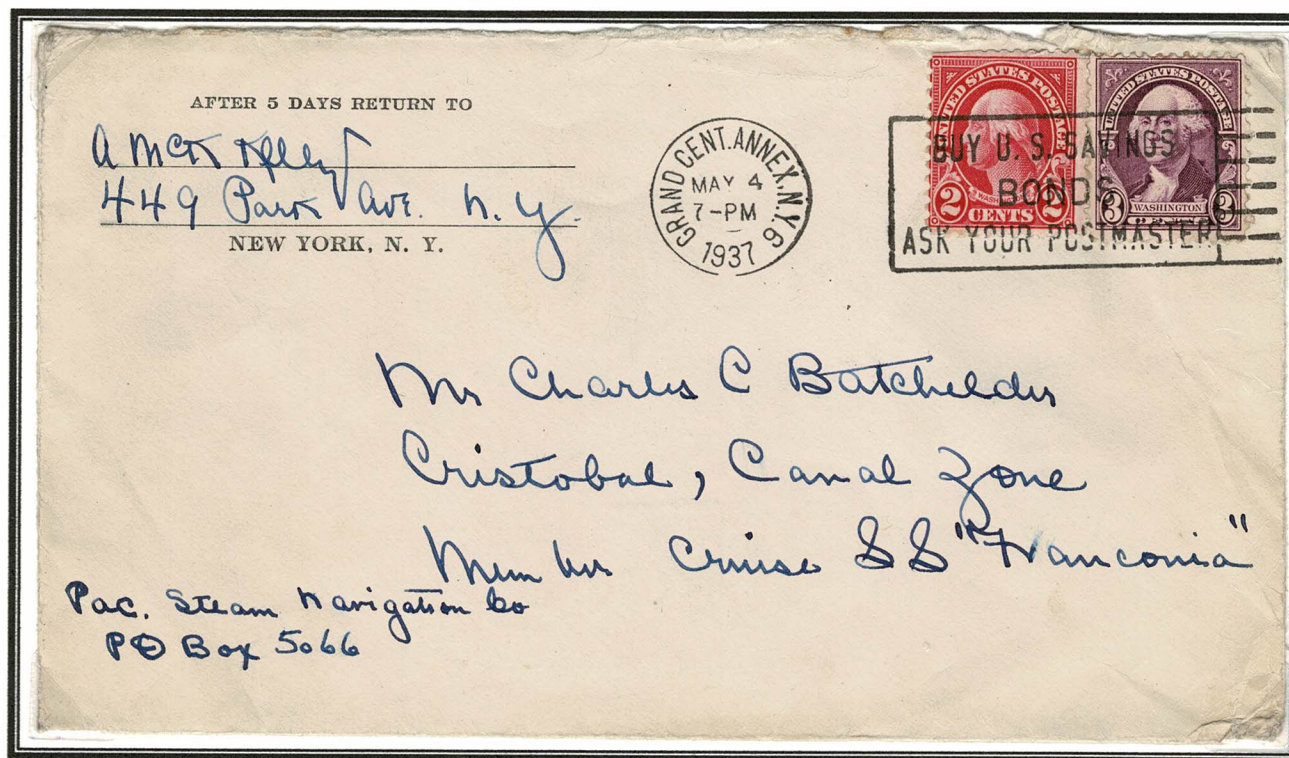 AFTER 5 DAYS RETURN TO
A McK Kelley
449 Park Ave. N.Y.
NEW YORK, N. Y.
GRAND CENT. ANNEX, N.Y. 6
MAY 4
7-PM
1937
BUY U. S. SAVINGS
BONDS
ASK YOUR POSTMASTER
UNITED STATES POSTAGE
2 CENTS 2
UNITED STATES POSTAGE
WASHINGTON
3 3
Mr Charles C Batchelder
Cristobal, Canal Zone
Member Cruise SS "Franconia"
Pac. Steam Navigation Co
PO Box 5066